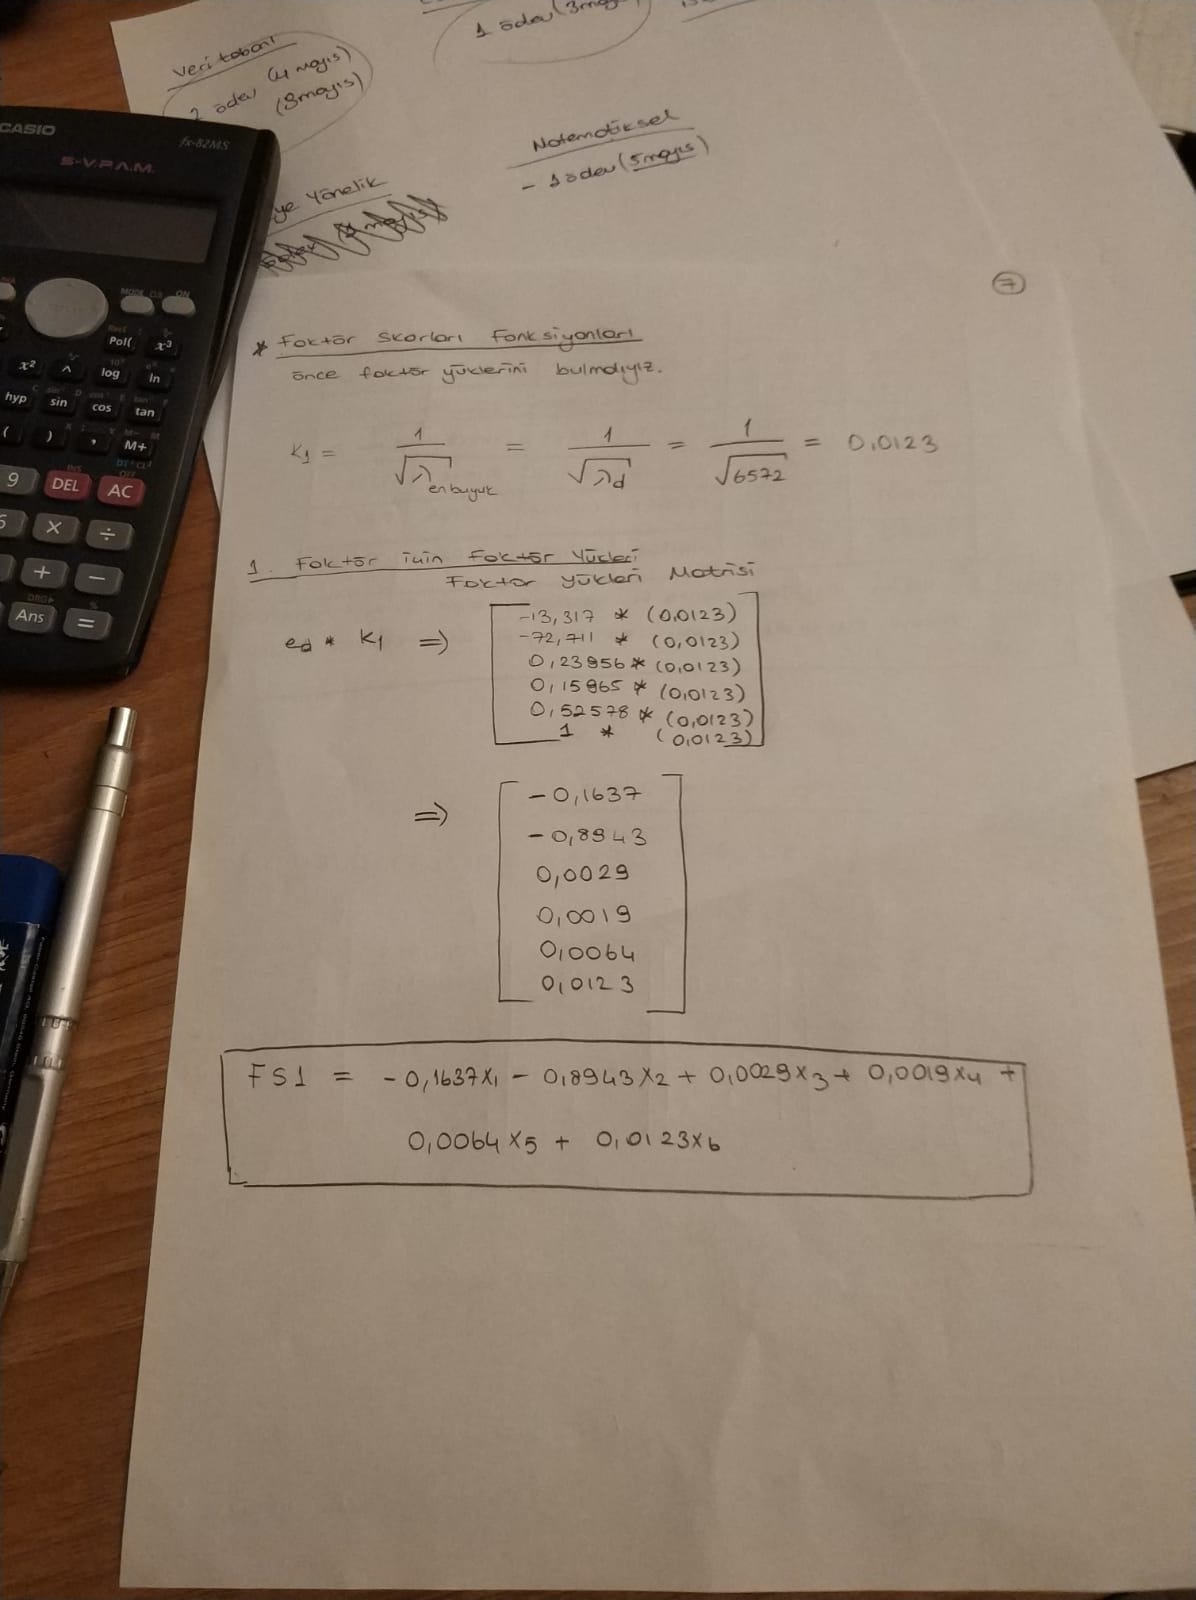 1 ödev (3may
Veri tabanı
2 ödev (4 mayıs)
(8mayıs)
Matematiksel
- 1 ödev (5 mayıs)
ye Yönelik
CASIO
fx-82MS
S-V.P.A.M.
MODE ON
Pol( x³
x² ^ log ln
hyp sin cos tan
( ) , M+
9 DEL AC
× ÷
+ −
Ans =
7
* Faktör skorları Fonksiyonları
önce faktör yüklerini bulmalıyız.
K1 = 1/√λenbuyuk = 1/√λd = 1/√6572 = 0,0123
1. Faktör için Faktör Yükleri
Faktör yükleri Matrisi
ed * K1 ⇒
-13,317 * (0,0123)
-72,711 * (0,0123)
0,23956 * (0,0123)
0,15865 * (0,0123)
0,52578 * (0,0123)
1 * (0,0123)
⇒
-0,1637
-0,8943
0,0029
0,0019
0,0064
0,0123
FS1 = -0,1637x1 - 0,8943x2 + 0,0029x3 + 0,0019x4 +
0,0064x5 + 0,0123x6